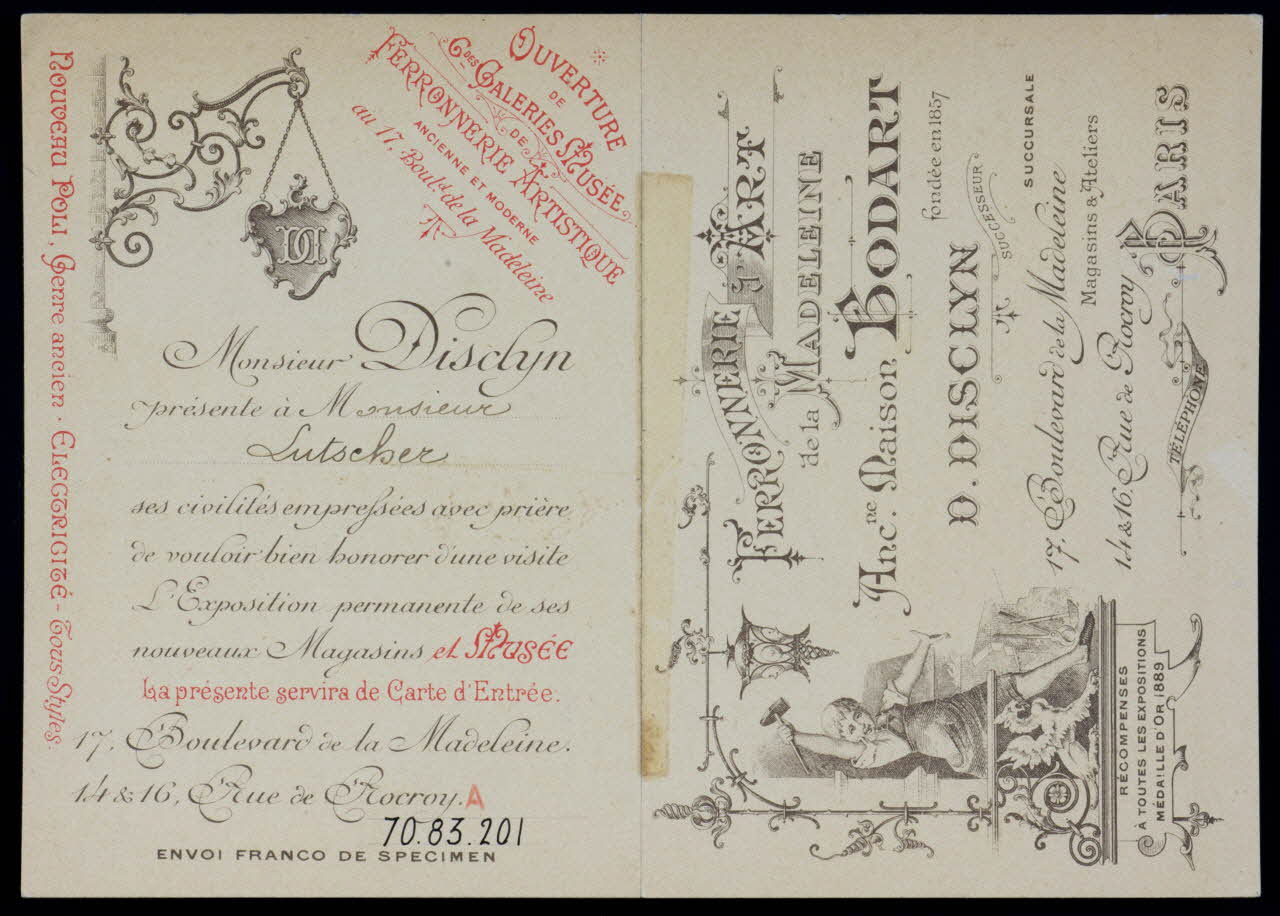 OUVERTURE
DE
Gdes GALERIES MUSÉE
DE
FERRONNERIE ARTISTIQUE
ANCIENNE ET MODERNE
au 17, Bould. de la Madeleine
NOUVEAU POLI, Genre ancien. ELECTRICITÉ - Tous Styles.
DD
Monsieur Disclyn
présente à Monsieur
Lutscher
ses civilités empressées avec prière
de vouloir bien honorer d'une visite
L'Exposition permanente de ses
nouveaux Magasins et MUSÉE
La présente servira de Carte d'Entrée.
17, Boulevard de la Madeleine.
14 & 16, Rue de Rocroy. A
70.83.201
ENVOI FRANCO DE SPECIMEN
FERRONNERIE d'ART
de la MADELEINE
Ancne. Maison BODART
fondée en 1857
D. DISCLYN
SUCCESSEUR
SUCCURSALE
17, Boulevard de la Madeleine
Magasins & Ateliers
14 & 16, Rue de Rocroy
PARIS
TÉLÉPHONE
RÉCOMPENSES
À TOUTES LES EXPOSITIONS
MÉDAILLE D'OR 1889